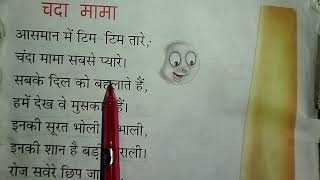 चंदा मामा
आसमान में टिम-टिम तारे,
चंदा मामा सबसे प्यारे।
सबके दिल को बहलाते हैं,
हमें देख वे हैं,
इनकी सूरत भोली भाली,
इनकी शान है
रोज सवेरे छिप